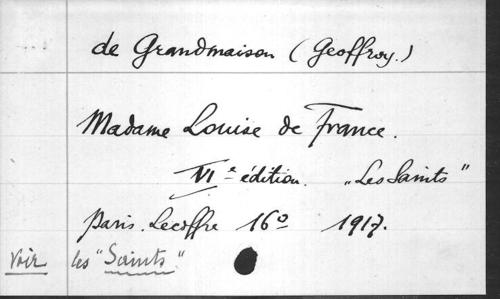 de Grandmaison (Geoffroy.)
Madame Louise de France.
VIe édition. „Les Saints"
Paris. Lecoffre 16o 1917.
Voir les "Saints."